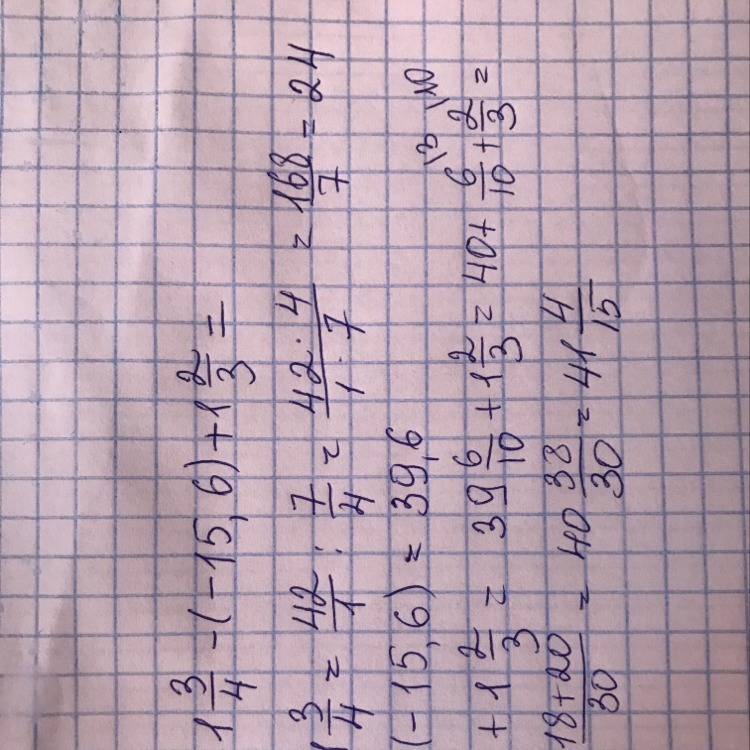 1 3/4 - (-15,6) + 1 2/3 =
1 3/4 = 42/1 : 7/4 = 42 · 4/1 · 7 = 168/7 = 24
(-15,6) = 39,6
+ 1 2/3 = 39 6/10 + 1 2/3 = 40 + 6/10 \3 + 2/3 \10 =
18+20/30 = 40 38/30 = 41 4/15